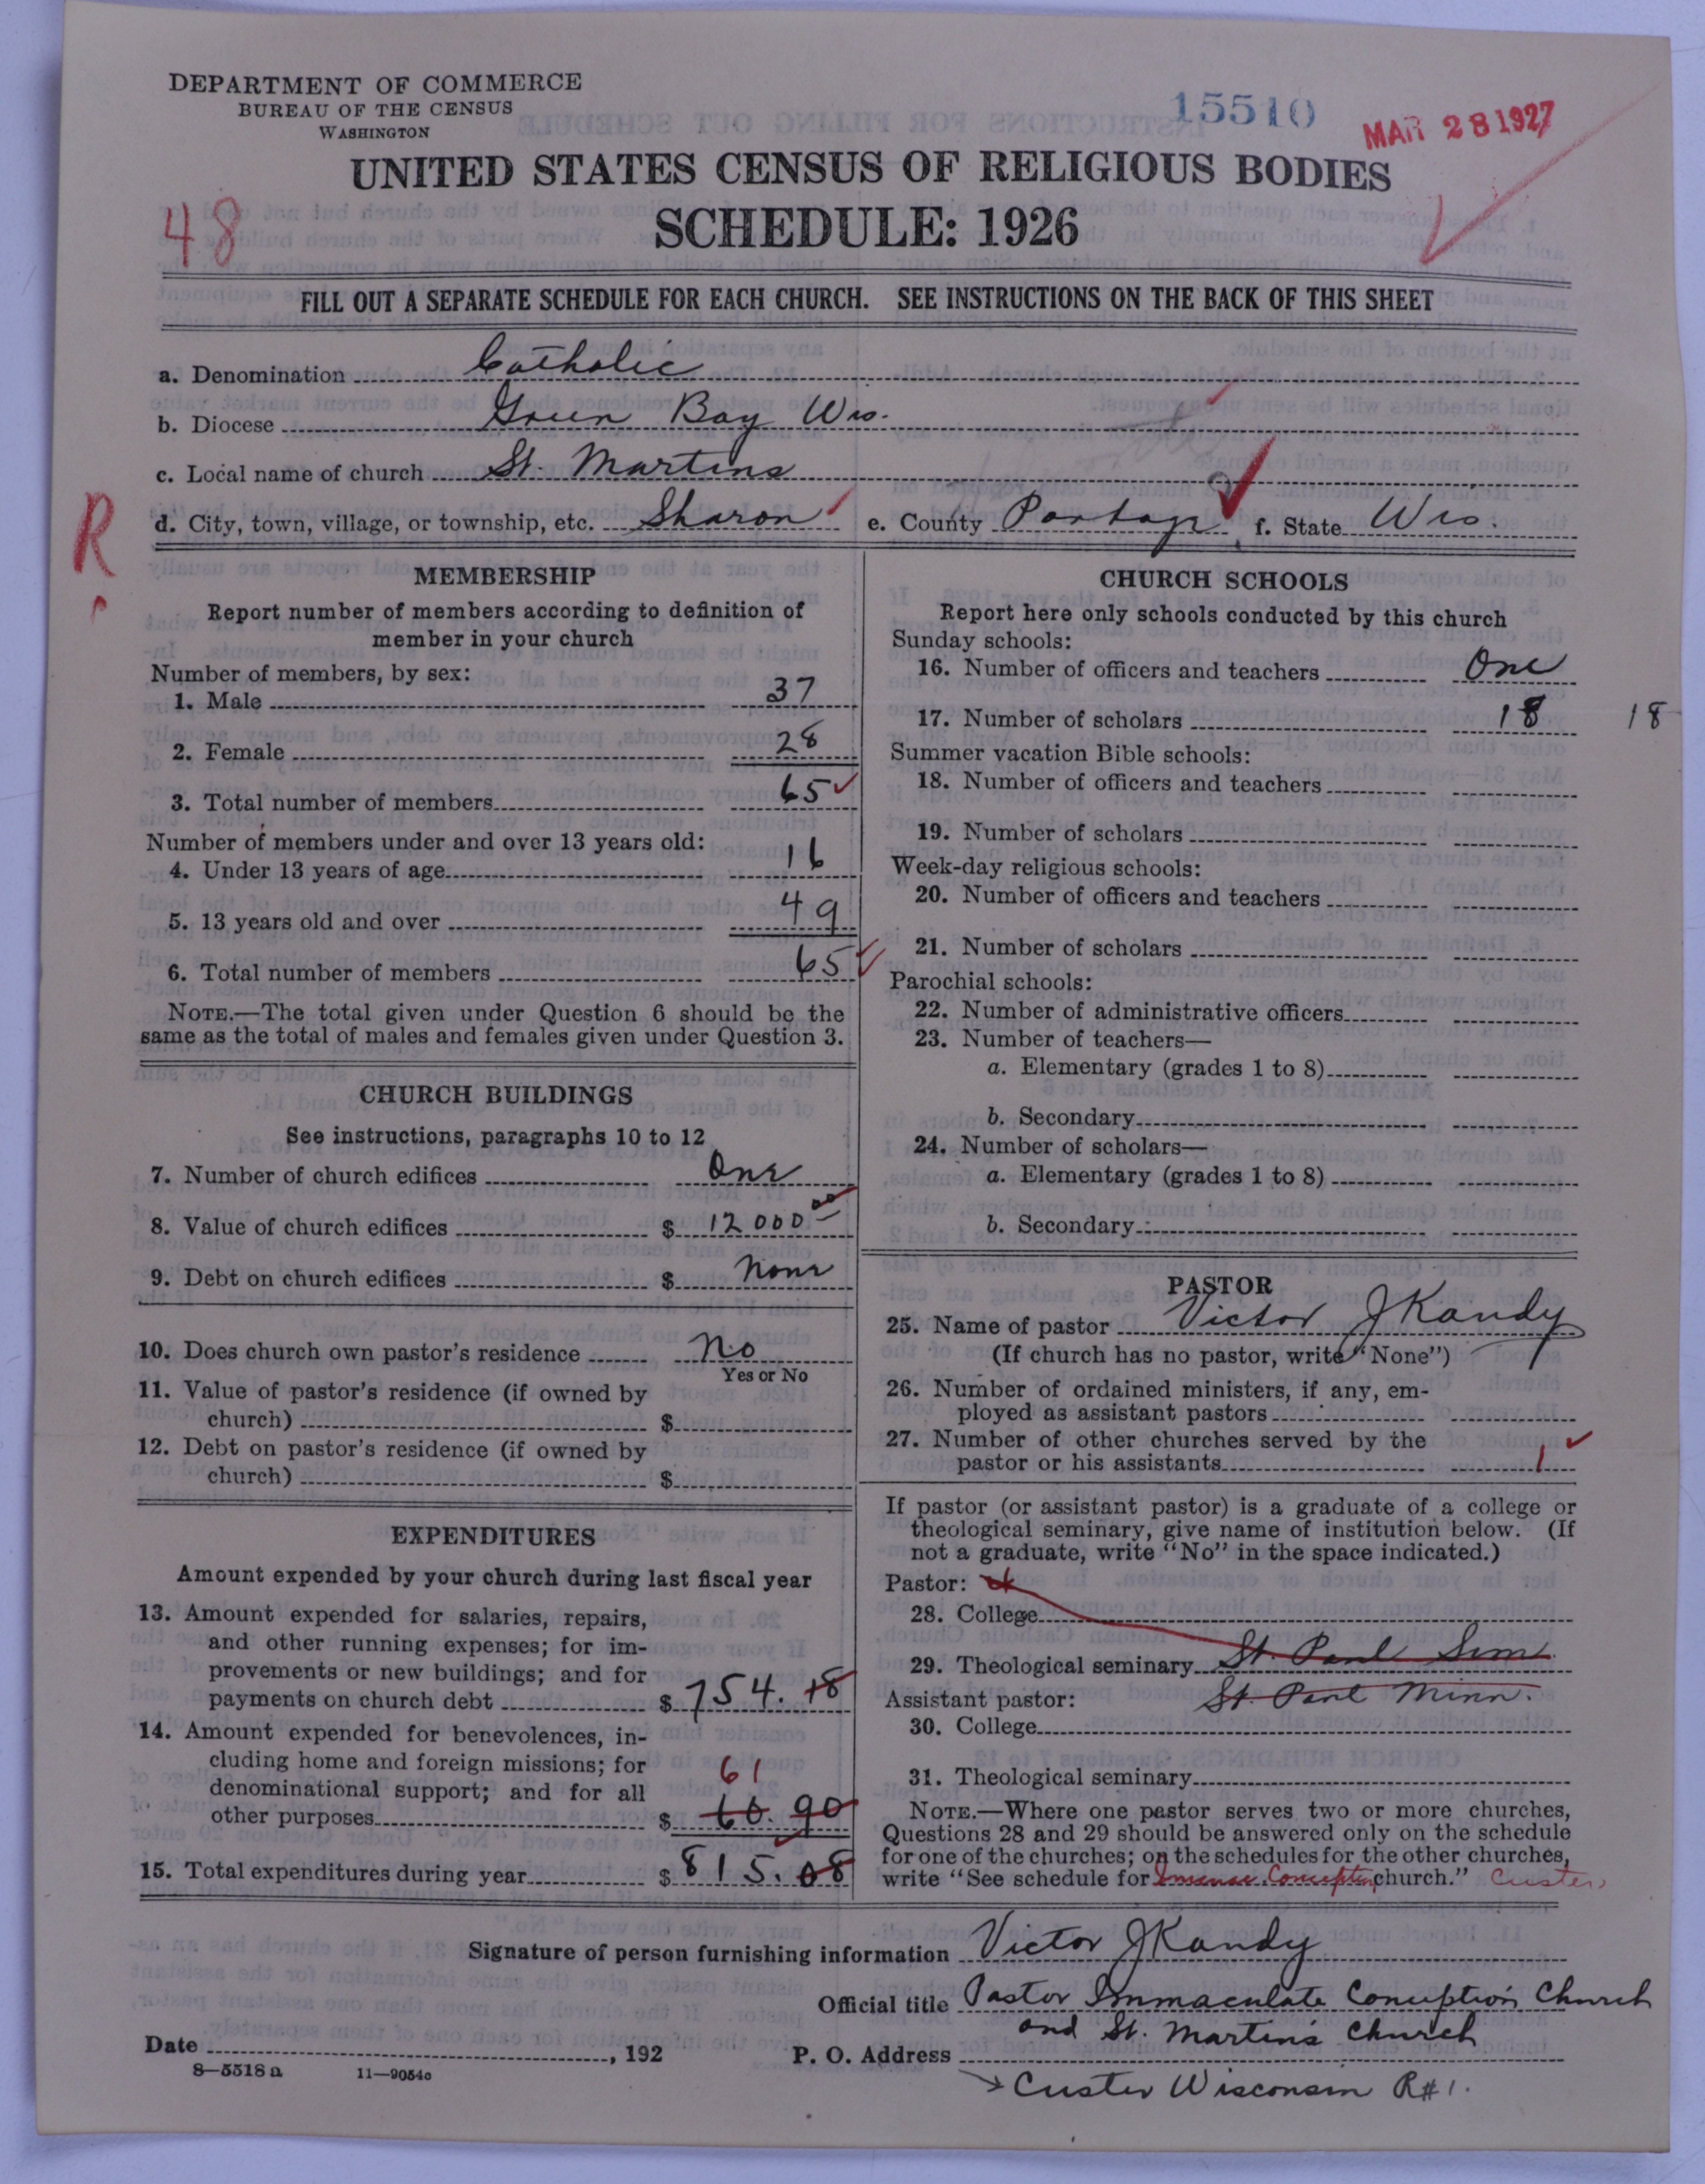 DEPARTMENT OF COMMERCE
BUREAU OF THE CENSUS
WASHINGTON
15510
MAR 28 1927
UNITED STATES CENSUS OF RELIGIOUS BODIES
48
SCHEDULE: 1926
FILL OUT A SEPARATE SCHEDULE FOR EACH CHURCH. SEE INSTRUCTIONS ON THE BACK OF THIS SHEET
a. Denomination Catholic
b. Diocese Green Bay Wis.
c. Local name of church St. Martins
R
d. City, town, village, or township, etc. Sharon e. County Portage f. State Wis.
MEMBERSHIP
Report number of members according to definition of
member in your church
Number of members, by sex:
1. Male 37
2. Female 28
3. Total number of members 65
Number of members under and over 13 years old:
4. Under 13 years of age 16
5. 13 years old and over 49
6. Total number of members 65
NOTE.—The total given under Question 6 should be the
same as the total of males and females given under Question 3.
CHURCH BUILDINGS
See instructions, paragraphs 10 to 12
7. Number of church edifices One
8. Value of church edifices $ 12000 00
9. Debt on church edifices $ None
10. Does church own pastor's residence No
Yes or No
11. Value of pastor's residence (if owned by
church) $
12. Debt on pastor's residence (if owned by
church) $
EXPENDITURES
Amount expended by your church during last fiscal year
13. Amount expended for salaries, repairs,
and other running expenses; for im-
provements or new buildings; and for
payments on church debt $ 754. 18
14. Amount expended for benevolences, in-
cluding home and foreign missions; for
61
denominational support; and for all
other purposes $ 60. 90
15. Total expenditures during year $ 815. 08
CHURCH SCHOOLS
Report here only schools conducted by this church
Sunday schools:
16. Number of officers and teachers One
17. Number of scholars 18 18
Summer vacation Bible schools:
18. Number of officers and teachers
19. Number of scholars
Week-day religious schools:
20. Number of officers and teachers
21. Number of scholars
Parochial schools:
22. Number of administrative officers
23. Number of teachers—
a. Elementary (grades 1 to 8)
b. Secondary
24. Number of scholars—
a. Elementary (grades 1 to 8)
b. Secondary
PASTOR
25. Name of pastor Victor J Kandy
(If church has no pastor, write "None")
26. Number of ordained ministers, if any, em-
ployed as assistant pastors
27. Number of other churches served by the
pastor or his assistants 1
If pastor (or assistant pastor) is a graduate of a college or
theological seminary, give name of institution below. (If
not a graduate, write "No" in the space indicated.)
Pastor:
28. College
29. Theological seminary St. Paul Sem
Assistant pastor: St. Paul Minn.
30. College
31. Theological seminary
NOTE.—Where one pastor serves two or more churches,
Questions 28 and 29 should be answered only on the schedule
for one of the churches; on the schedules for the other churches,
write "See schedule for Conception church." Custer
Signature of person furnishing information Victor J Kandy
Official title Pastor Immaculate Conception Church
and St. Martin's Church
Date , 192
P. O. Address
Custer Wisconsin R#1.
8—5518 a 11—9054c